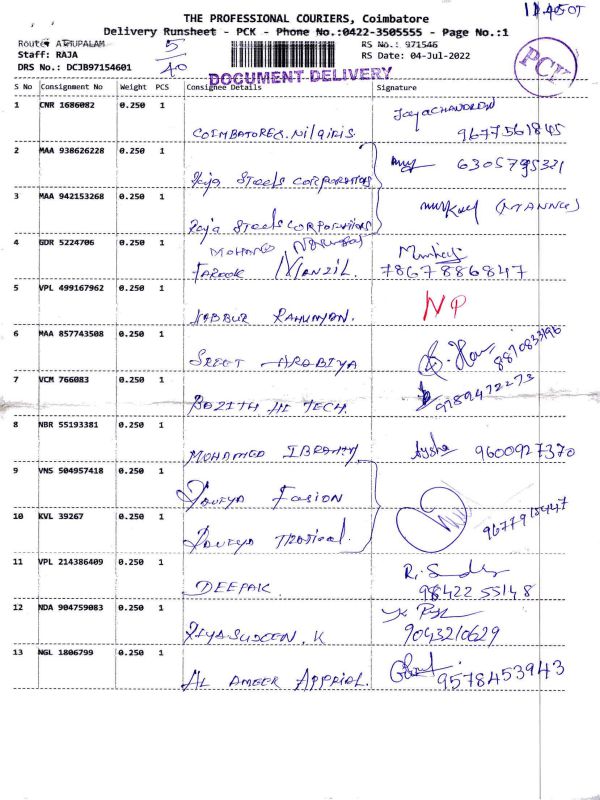 THE PROFESSIONAL COURIERS, Coimbatore
Delivery Runsheet - PCK - Phone No.:0422-3505555 - Page No.:1
Route: ATHUPALAM
RS No.: 971546
Staff: RAJA
RS Date: 04-Jul-2022
DRS No.: DCJB97154601
5/40
PCK
DOCUMENT DELIVERY
S No Consignment No Weight PCS Consignee Details Signature
1 CNR 1686082 0.250 1 JayaCHANDRON
COIMBATORE &. Nilgiris 9677561845
2 MAA 938626228 0.250 1 6305795321
Raja Steels CORPORATIONS
3 MAA 942153268 0.250 1
Raja Steels CORPORATIONS
4 GDR 5224706 0.250 1 MOHAMED
FAROOK MANZIL. 7867886847
5 VPL 499167962 0.250 1 NP
RAHUMAN.
6 MAA 857743508 0.250 1 8870833196
SREET ARABIYA
7 VCM 766083 0.250 1 9789472273
BOZITH HI TECH.
8 NBR 55193381 0.250 1 Aysha 9600927370
MOHAMED IBRAHIM
9 VNS 504957418 0.250 1
FASION
10 KVL 39267 0.250 1
11 VPL 214386409 0.250 1 R.
DEEPAK. 98422 55148
12 NDA 904759083 0.250 1
ZIYASUDEEN. K 9043210629
13 NGL 1806799 0.250 1
AL AMEER APPRIAL. 9578453943